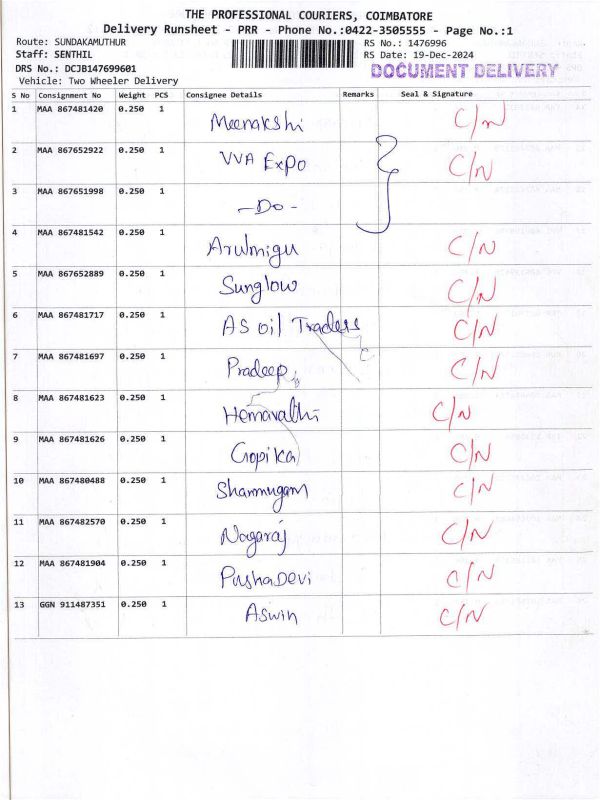 THE PROFESSIONAL COURIERS, COIMBATORE
Delivery Runsheet - PRR - Phone No.:0422-3505555 - Page No.:1
Route: SUNDAKAMUTHUR RS No.: 1476996
Staff: SENTHIL RS Date: 19-Dec-2024
DRS No.: DCJB147699601 DOCUMENT DELIVERY
Vehicle: Two Wheeler Delivery
S No Consignment No Weight PCS Consignee Details Remarks Seal & Signature
1 MAA 867481420 0.250 1 Meenakshi C/N
2 MAA 867652922 0.250 1 VVA Expo C/N
3 MAA 867651998 0.250 1 -Do-
4 MAA 867481542 0.250 1 Arulmigu C/N
5 MAA 867652889 0.250 1 Sunglow C/N
6 MAA 867481717 0.250 1 AS Oil Traders C/N
7 MAA 867481697 0.250 1 Pradeep C/N
8 MAA 867481623 0.250 1 Hemavathi C/N
9 MAA 867481626 0.250 1 Gopika C/N
10 MAA 867480488 0.250 1 Shanmugam C/N
11 MAA 867482570 0.250 1 Nagaraj C/N
12 MAA 867481904 0.250 1 PushaDevi C/N
13 GGN 911487351 0.250 1 Aswin C/N